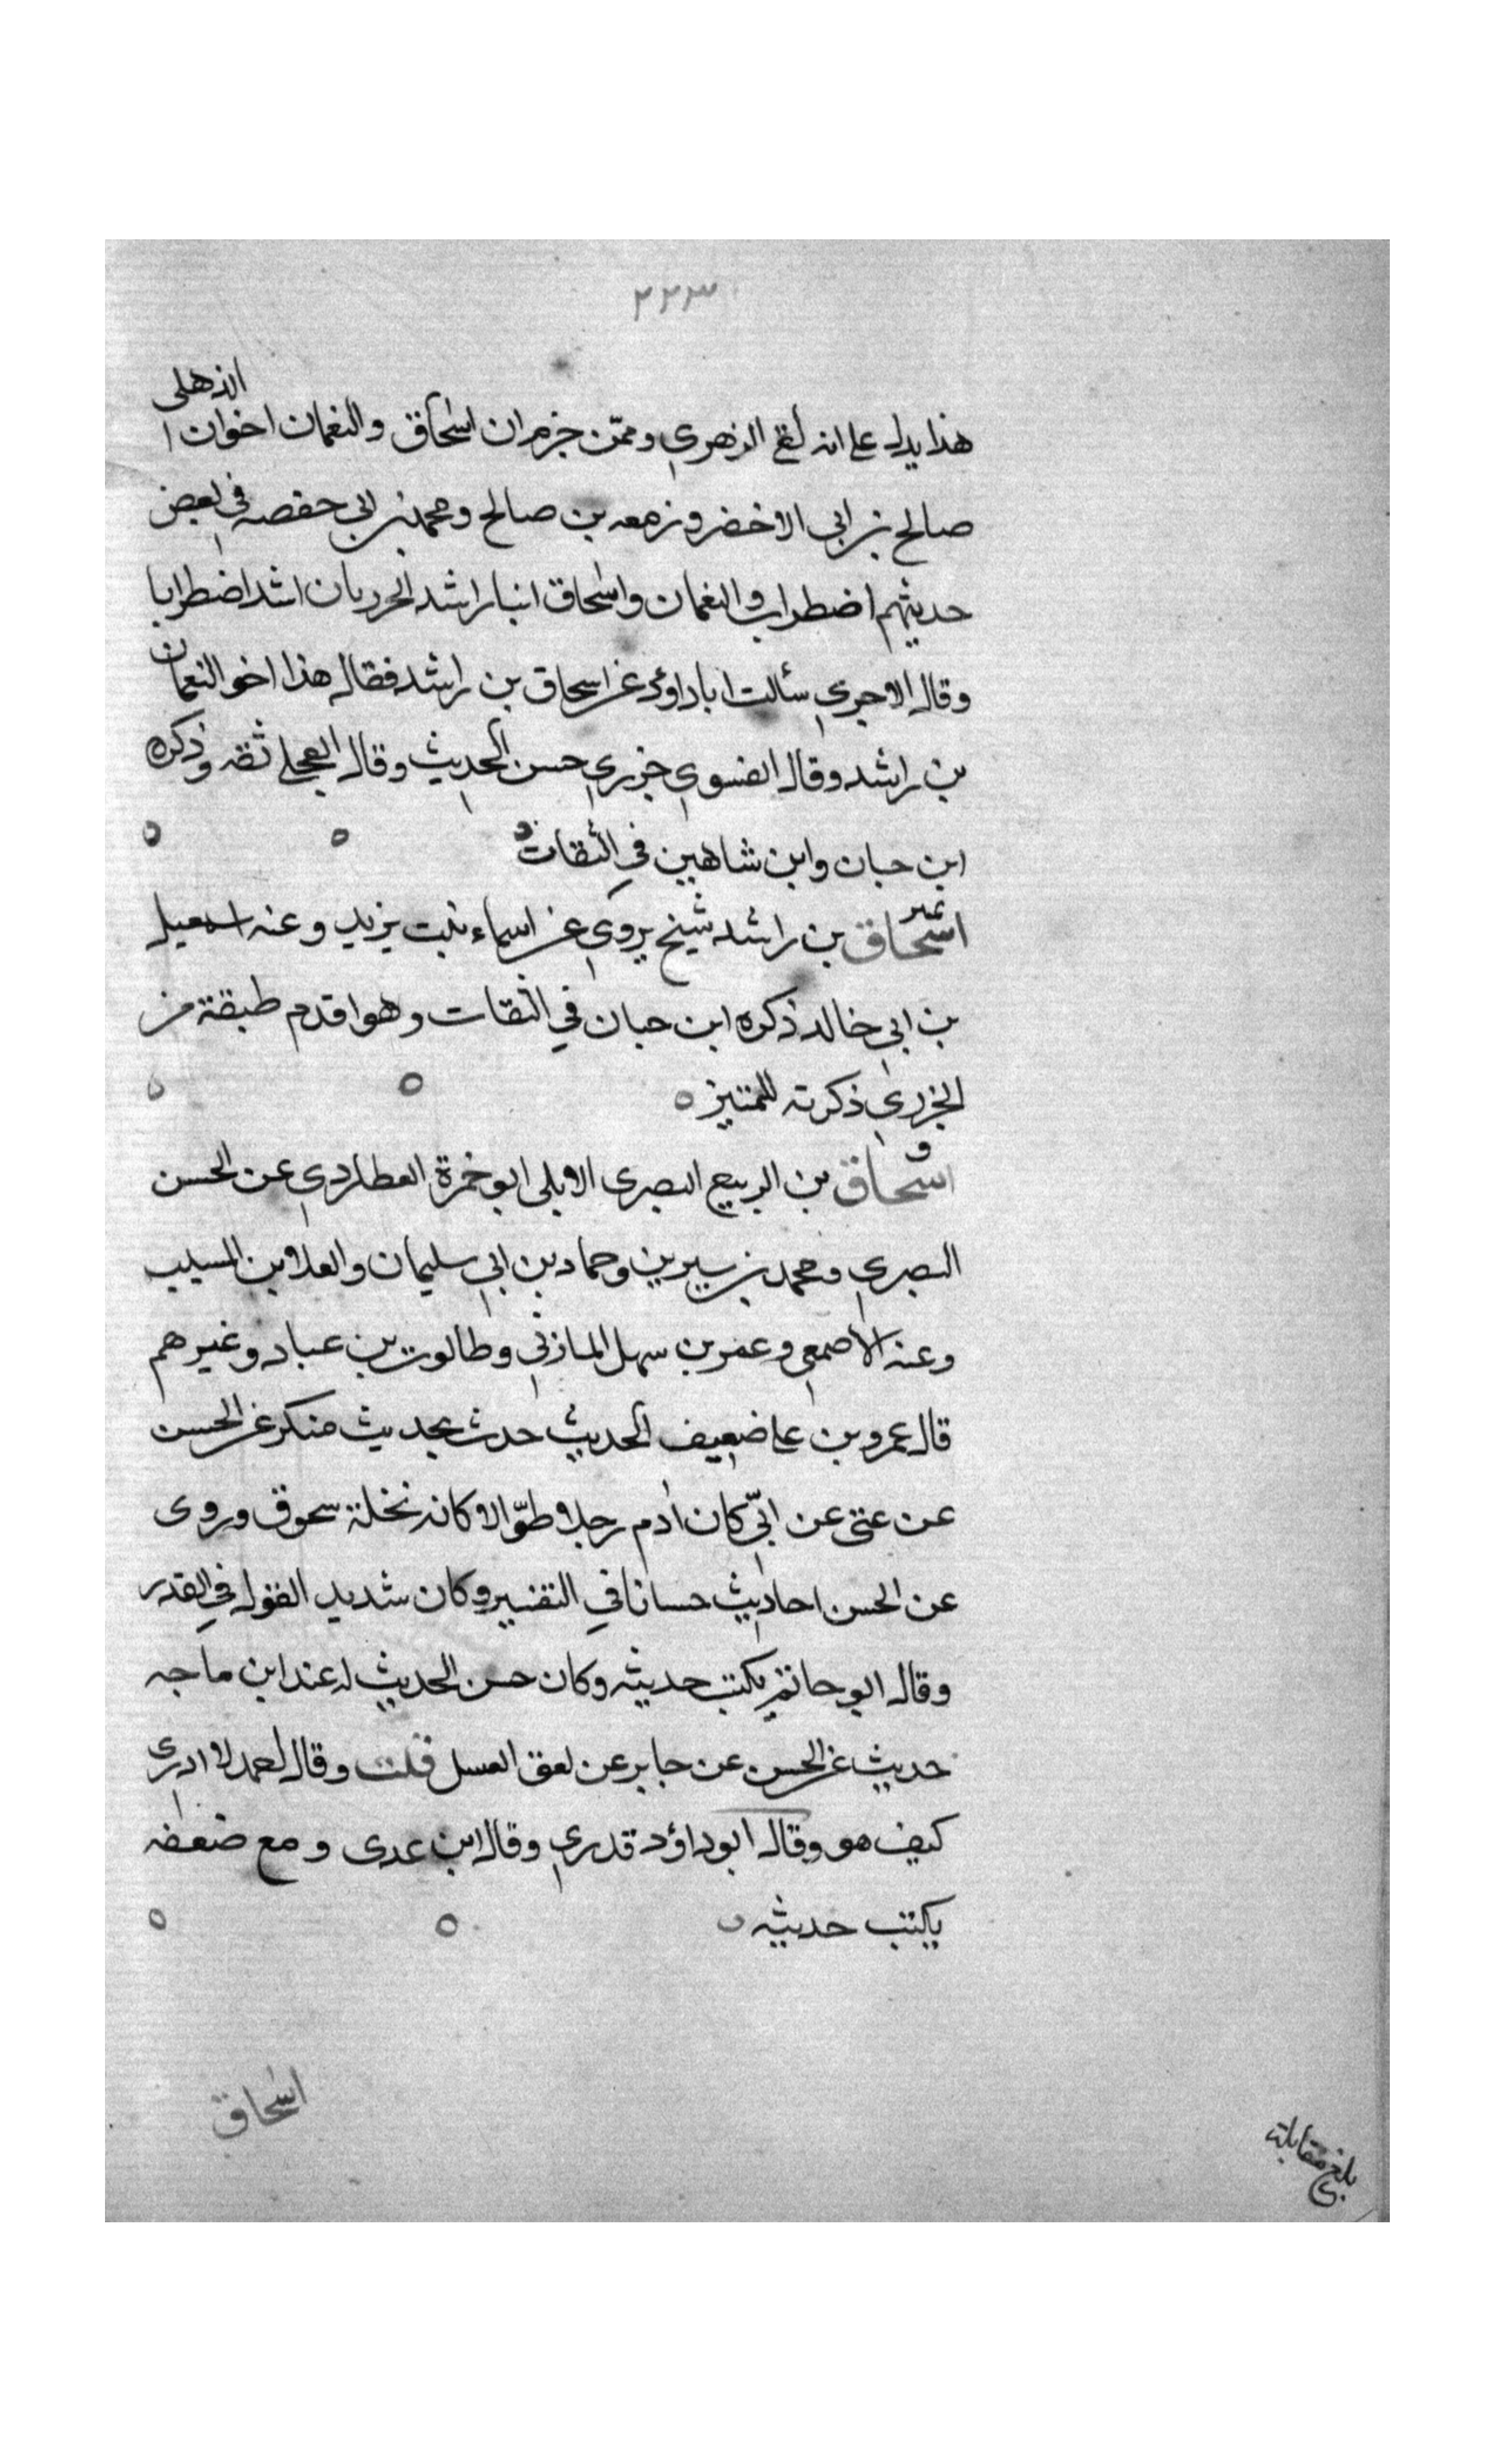 ٢٢٣
هذا يدل على انه لقى الزهرى وممّن جزم ان اسحاق والنعمان اخوان الذهلى
صالح بن ابى الاخضر وزمعه بن صالح ومحمد بن ابى حفصه فى بعض
حديثهم اضطراب والنعمان واسحاق انبا راشد الحرريان اشد اضطرابا
وقال الاجرى سئالت ابا داؤد عن اسحاق بن راشد فقال هذا اخو النعمان
بن راشد وقال الفسوى جزرى حسن الحديث وقال العجلى ثقه وذكره
ابن حبان وابن شاهين فى الثقات ٥ ٥ ٥
تمير
اسحاق بن راشد شيخ يروى عن اسماء بنت يزيد وعنه اسمعيل
بن ابى خالد ذكره ابن حبان فى الثقات وهو اقدم طبقة من
الجزرى ذكرته للتمييز ٥ ٥ ٥
ق
اسحاق بن الربيع البصرى الابلى ابو حمزة العطاردى عن الحسن
البصرى ومحمد بن سيرين وحماد بن ابى سليمان والعلا بن المسيب
وعنه الاصمعى وعمر بن سهل المازنى وطالوت بن عباد وغيرهم
قال عمرو بن على ضعيف الحديث حدث بحديث منكر عن الحسن
عن عتى عن ابىّ كان ادم رجلا طوّالا كانه نخلة سحوق وروى
عن الحسن احاديث حسانا فى التفسير وكان شديد القول فى القدر
وقال ابو حاتم يكتب حديثه وكان حسن الحديث له عند ابن ماجه
حديث عن الحسن عن جابر عن لعق العسل قلت وقال احمد لا ادرى
كيف هو وقال ابو داؤد قدرى وقال ابن عدى ومع ضعفه
يكتب حديثه ٥ ٥ ٥
اسحاق
بلغ مقابلة